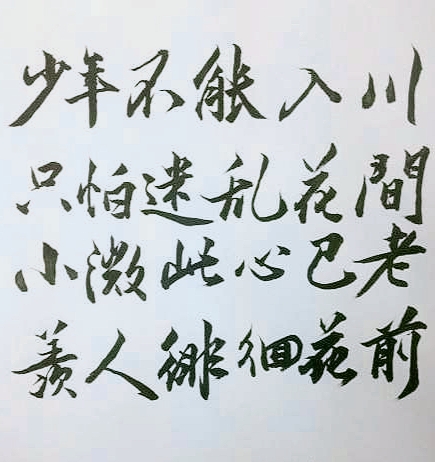 少年不能入川
只怕迷乱花間
小微此心已老
羨人徘徊花前